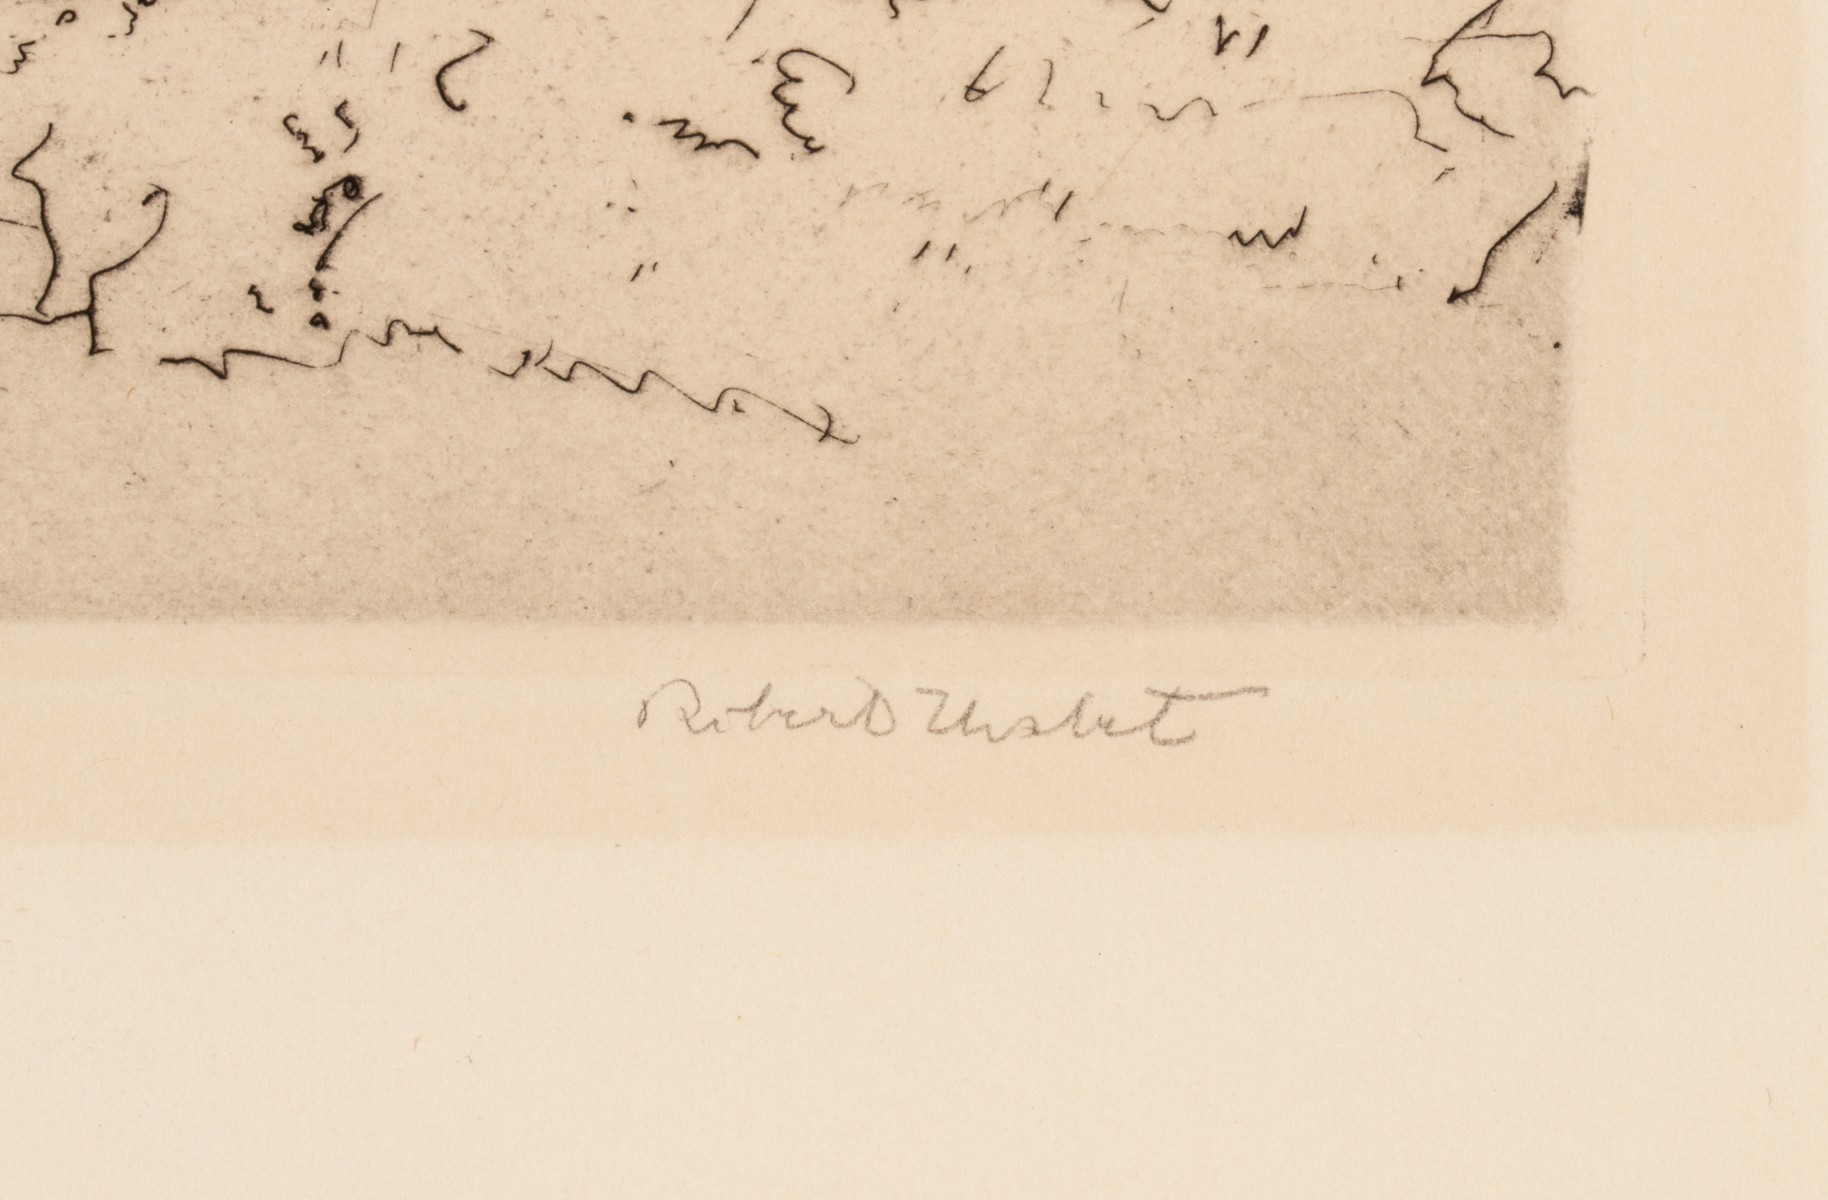 Robert Nisbet